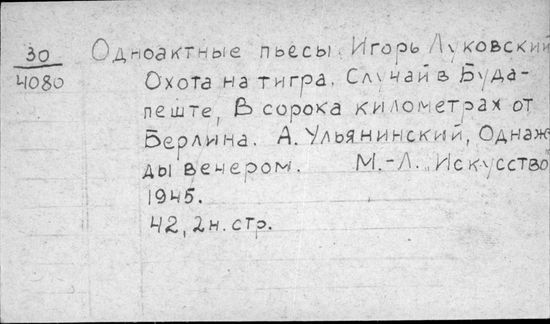 30 Одноактные пьесы. Игорь Луковский
4080 Охота на тигра. Случай в Буда-
пеште, В сорока километрах от
Берлина. А. Ульянинский, Однаж-
ды вечером. М.-Л. „Искусство
1945.
42, 2н. стр.